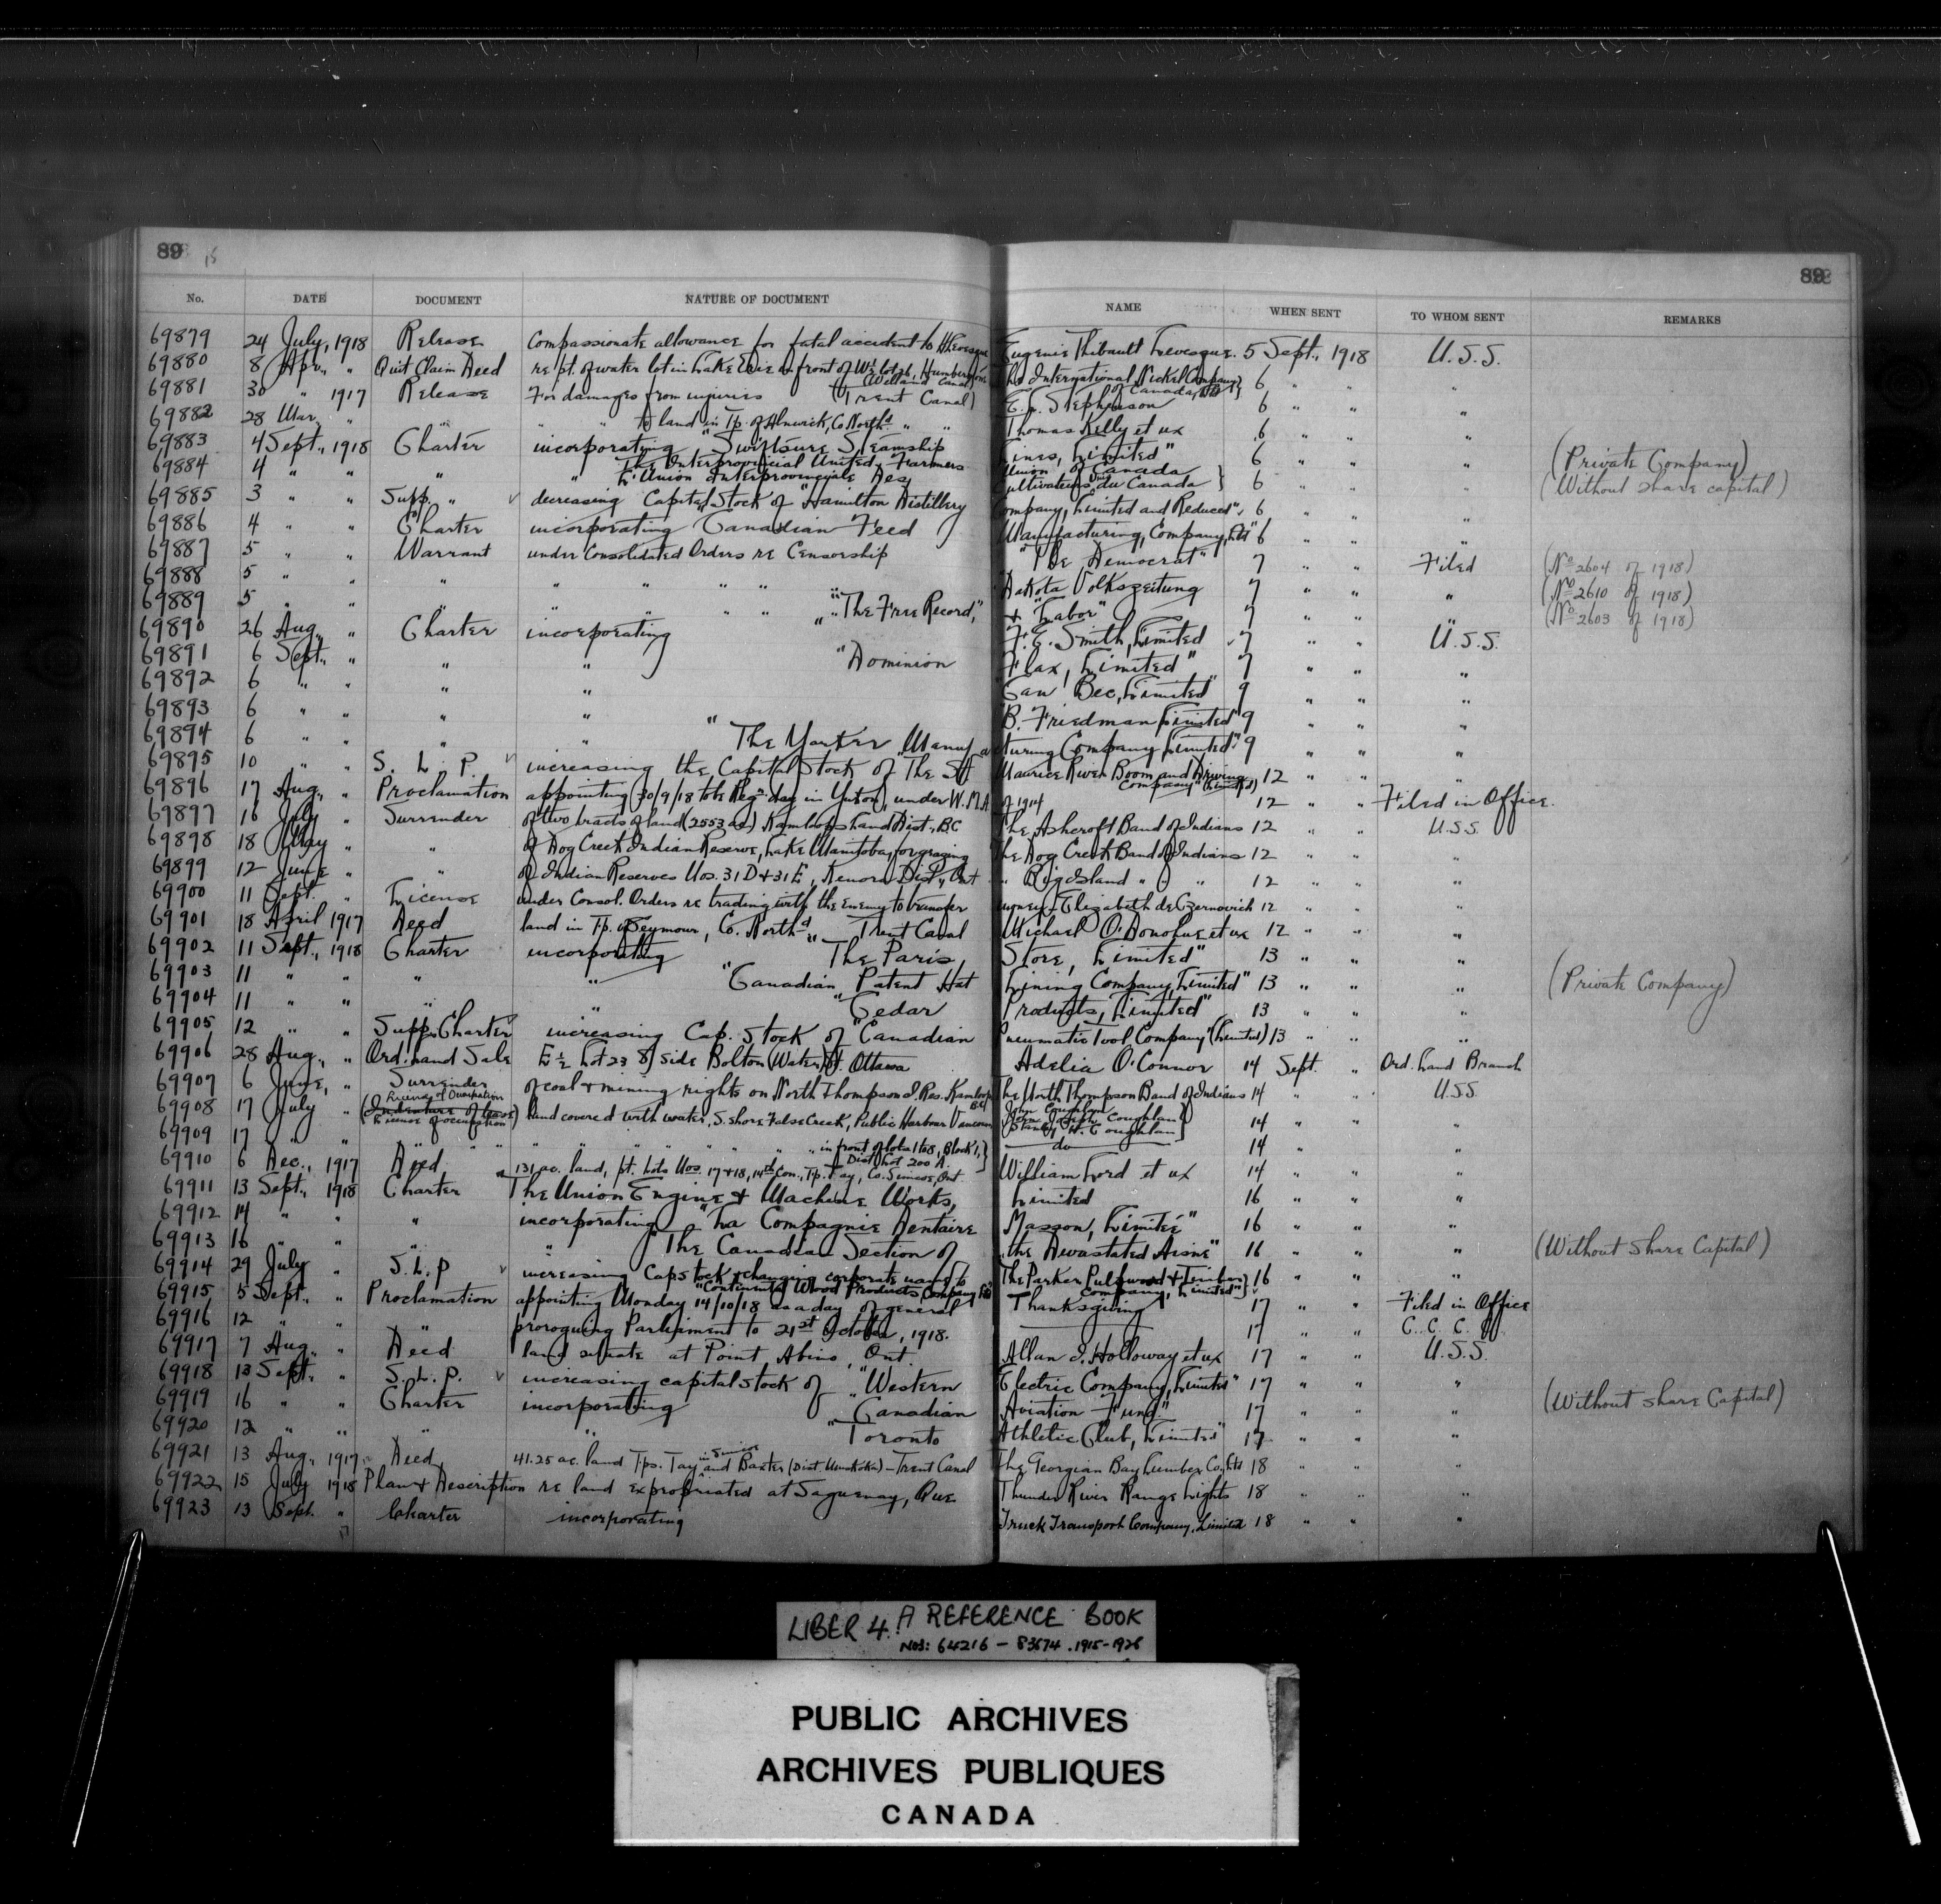 89
89
No. DATE DOCUMENT NATURE OF DOCUMENT NAME WHEN SENT TO WHOM SENT REMARKS
69879 24 July, 1918 Release Compassionate allowance for fatal accident to Eugenie Thibault Levesque. 5 Sept., 1918 U.S.S.
69880 8 Apr., " Quit Claim Deed re pt. of water lot in Lake Erie in front of W½ lot 26, The International Nickel Company of Canada, Ltd 6 " " "
69881 30 " 1917 Release For damages from injuries (Trent Canal) Stephenson 6 " " "
69882 28 Mar. " " " to land in Tp. of Alnwick, Co. North'd " " Thomas Kelly et ux 6 " " "
69883 4 Sept., 1918 Charter incorporating "Swiftsure Steamship Lines, Limited" 6 " " " (Private Company)
69884 4 " " " " The Interprovincial United Farmers Union of Canada L'Union Interprovinciale des Cultivateurs Unis du Canada 6 " " " (Without share capital)
69885 3 " " Supp. " decreasing Capital Stock of "Hamilton Distillery Company, Limited and Reduced" 6 " " "
69886 4 " " Charter incorporating Canadian Feed Manufacturing, Company, Ltd" 6 " " "
69887 5 " " Warrant under Consolidated Orders re Censorship "The Democrat" 7 " " Filed (No 2604 of 1918)
69888 5 " " " " " " " Dakota Volkszeitung 7 " " " (No 2610 of 1918)
69889 5 " " " " " " " "The Free Record," + "Labor" 7 " " " (No 2603 of 1918)
69890 26 Aug., " Charter incorporating F. E. Smith, Limited 7 " " U.S.S.
69891 6 Sept., " " " "Dominion Flax, Limited" 7 " " "
69892 6 " " " " "Can Bec, Limited" 9 " " "
69893 6 " " " " "B. Friedman Limited" 9 " " "
69894 6 " " " " "The Yorker Manufacturing Company Limited" 9 " " "
69895 10 " " S. L. P. increasing the Capital Stock of "The St Maurice River Boom and Driving Company" (Limited) 12 " " "
69896 17 Aug., " Proclamation appointing 30/9/18 to be Reg'n day in Yukon, under W.M.A. of 1914 12 " " Filed in Office.
69897 16 July " Surrender of two tracts of land (2553 ac) Kamloops Land Dist., B.C The Ashcroft Band of Indians 12 " " U.S.S.
69898 18 May " " of Dog Creek Indian Reserve, Lake Manitoba, for grazing The Dog Creek Band of Indians 12 " " "
69899 12 June " " of Indian Reserves Nos. 31 D + 31 E, Kenora Dist., Ont " Big Island " " " 12 " " "
69900 11 Sept. " License under Consol. Orders re trading with the enemy to transfer money - Elizabeth de Czernovich 12 " " "
69901 18 April 1917 Deed land in Tp. of Seymour, Co. North'd Trent Canal Michael O'Donohue et ux 12 " " "
69902 11 Sept., 1918 Charter incorporating "The Paris Store, Limited" 13 " " "
69903 11 " " " " "Canadian Patent Hat Lining Company, Limited" 13 " " " (Private Company)
69904 11 " " " " "Cedar Products, Limited" 13 " " "
69905 12 " " Supp. Charter increasing Cap. Stock of "Canadian Pneumatic Tool Company" (Limited) 13 " " "
69906 28 Aug., " Ord. Land Sale E ½ Lot 23 S/ Side Bolton (Water) St. Ottawa Adelia O'Connor 14 Sept. " Ord. Land Branch
69907 6 June, " Surrender of coal + mining rights on North Thompson I. Res. Kamloops B.C. The North Thompson Band of Indians 14 " " U.S.S.
69908 17 July " License of Occupation (Indenture of lease) (License of occupation) land covered with water, S. shore False Creek, Public Harbour Vancouver John Coughlan John Joseph Coughlan Stanley H. Coughlan 14 " " "
69909 17 " " " " " " " in front of lots 1 to 8, Block 1, Dist. Lot 200 A. do 14 " " "
69910 6 Dec., 1917 Deed 131 ac. land, pt. Lots Nos. 17+18, 14th Con., Tp. Tay, Co. Simcoe, Ont. William Ford et ux 14 " " "
69911 13 Sept., 1918 Charter The Union Engine + Machine Works, Limited 16 " " "
69912 14 " " " incorporating "La Compagnie Dentaire Masson, Limitée" 16 " " "
69913 16 " " " " "The Canadian Section of the Devastated Aisne" 16 " " " (Without Share Capital)
69914 29 July " S.L.P increasing Cap stock + changing corporate name to "Continental Wood Products Company Ltd" The Parker Pulpwood + Timber Company, Limited" 16 " " "
69915 5 Sept., " Proclamation appointing Monday 14/10/18 as a day of general Thanksgiving 17 " " Filed in Office
69916 12 " " " proroguing Parliament to 21st October, 1918. 17 " " C. C. C.
69917 7 Aug., " Deed land situate at Point Abino, Ont. Allan I. Holloway et ux 17 " " U.S.S.
69918 13 Sept. " S.L.P. increasing capital stock of "Western Electric Company, Limited" 17 " " "
69919 16 " " Charter incorporating "Canadian Aviation Fund" 17 " " " (Without Share Capital)
69920 12 " " " " "Toronto Athletic Club, Limited" 17 " " "
69921 13 Aug., 1917 Deed 41.25 ac. land Tps. Tay in Simcoe and Baxter (Dist. Muskoka) - Trent Canal The Georgian Bay Lumber Co. Ltd 18 " " "
69922 15 July 1918 Plan + Description re land expropriated at Saguenay, Que. Thunder River Range Lights 18 " " "
69923 13 Sept. " Charter incorporating Truck Transport Company, Limited 18 " " "
LIBER 4. A REFERENCE BOOK
NOS: 64216 - 83674. 1915-1928
PUBLIC ARCHIVES
ARCHIVES PUBLIQUES
CANADA